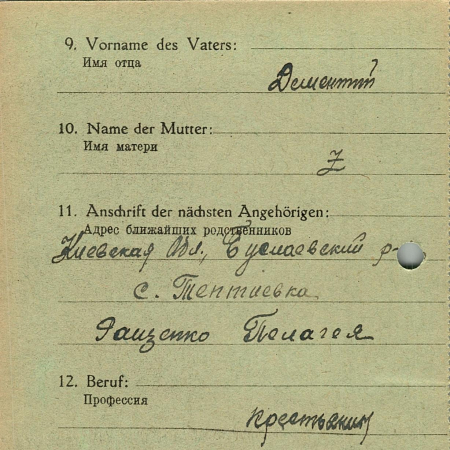 9. Vorname des Vaters:
Имя отца
Дементий
10. Name der Mutter:
Имя матери
Z
11. Anschrift der nächsten Angehörigen:
Адрес ближайших родственников
Киевская Обл., Буслаевский р-
с. Тептиевка
Пелагея
12. Beruf:
Профессия
крестьянин